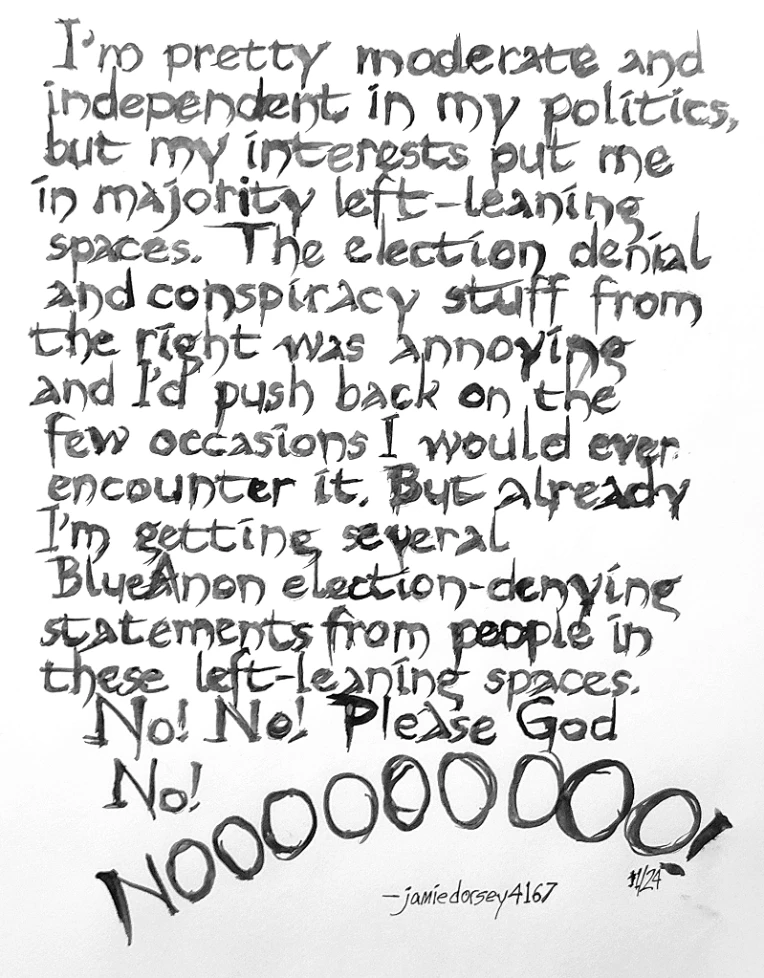 I'm pretty moderate and
independent in my politics,
but my interests put me
in majority left-leaning
spaces. The election denial
and conspiracy stuff from
the right was annoying
and I'd push back on the
few occasions I would ever
encounter it. But already
I'm getting several
BlueAnon election-denying
statements from people in
these left-leaning spaces.
No! No! Please God
No!
NOOOOOOOOOO!
-jamiedorsey4167
11/24